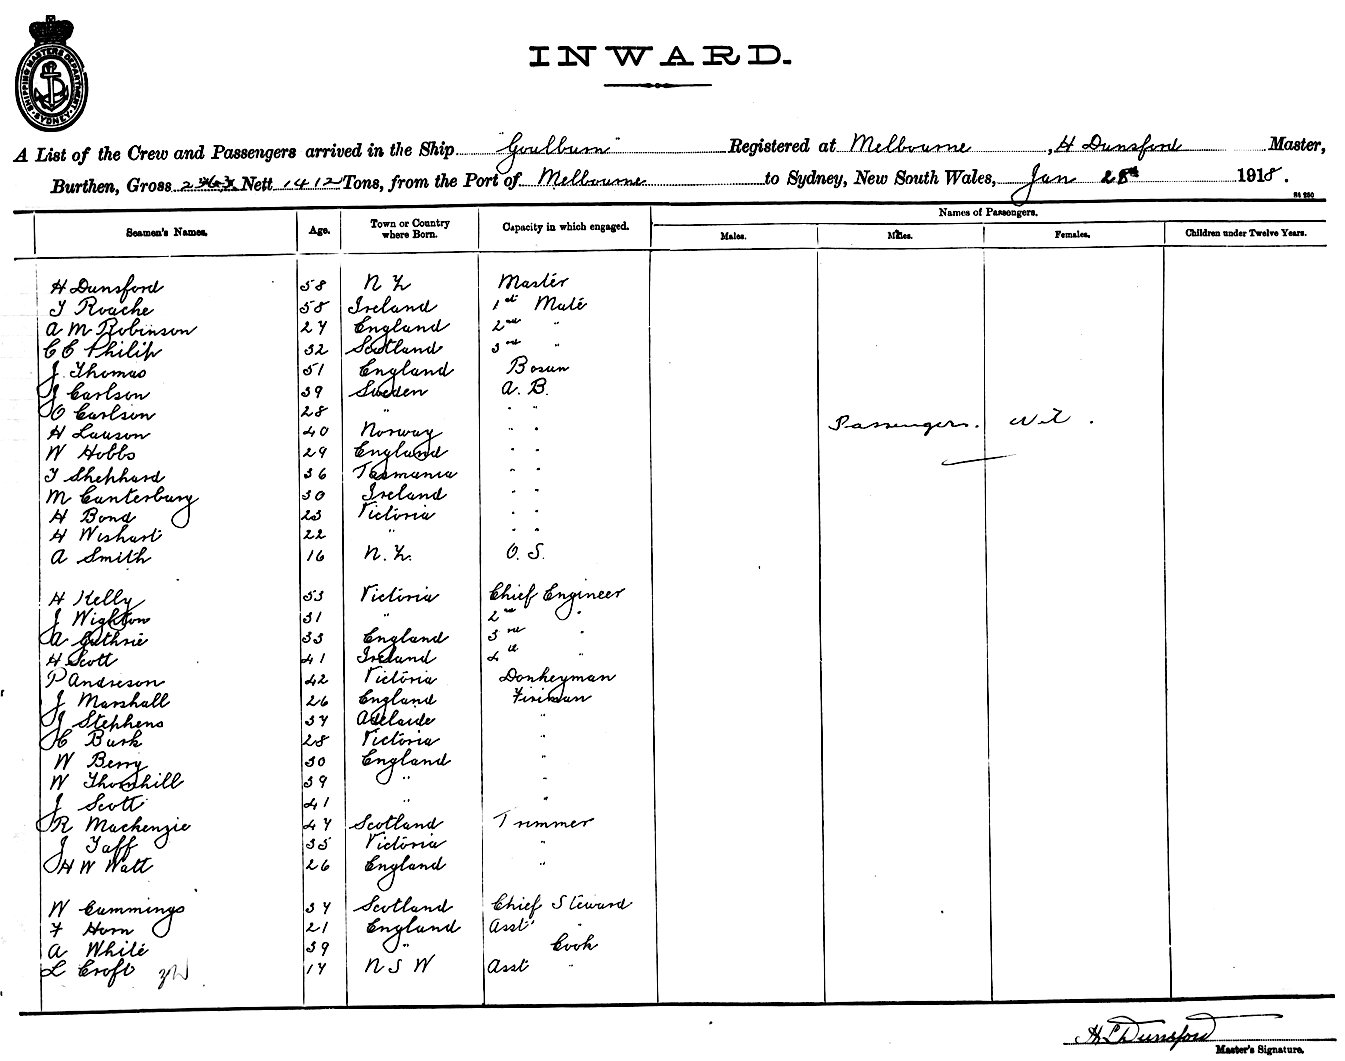 SHIPPING MASTERS DEPARTMENT SYDNEY
INWARD.
A List of the Crew and Passengers arrived in the Ship "Goulburn" Registered at Melbourne, H Dunsford Master,
Burthen, Gross Nett 1412 Tons, from the Port of Melbourne to Sydney, New South Wales, Jan 28th 1918.
Names of Passengers.
Seamen's Names. Age. Town or Country where Born. Capacity in which engaged. Males. Males. Females. Children under Twelve Years.
H Dunsford 58 N Z Master
T Roache 58 Ireland 1st Mate
A M Robinson 27 England 2nd "
C C Philip 32 Scotland 3rd "
J Thomas 51 England Bosun
J Carlson 39 Sweden A. B.
O Carlson 28 " " "
H Lauson 40 Norway " "
Passengers. Nil.
W Hobbs 29 England " "
T Shephard 36 Tasmania " "
M Canterbury 30 Ireland " "
H Bond 23 Victoria " "
H Wishart 22 " " "
A Smith 16 N. Z. O. S.
H Kelly 53 Victoria Chief Engineer
J Wighton 31 " 2nd "
A Guthrie 33 England 3rd "
H Scott 41 Ireland 4th "
P Andreson 42 Victoria Donkeyman
J Marshall 26 England Fireman
J Stephens 37 Adelaide "
C Burk 28 Victoria "
W Berry 30 England "
W Thornhill 39 " "
J Scott 41 " "
R Mackenzie 47 Scotland Trimmer
J Taff 35 Victoria "
H W Watt 26 England "
W Cummings 37 Scotland Chief Steward
F Horn 21 England Asst "
A White 39 " Cook
L Croft 17 N S W Asst "
H L Dunsford
Master's Signature.